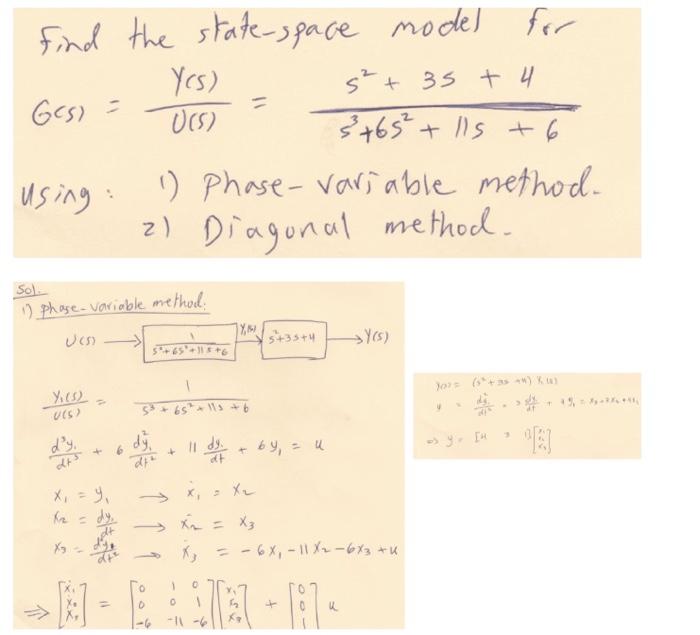 Find the state-space model for
G(s) = Y(s) / U(s) = s² + 3s + 4 / s³+6s² + 11s + 6
using : 1) Phase-variable method.
2) Diagonal method.
Sol.
1) phase-variable method:
U(s) → 1 / s³+6s²+11s+6 Y₁(s) → s²+3s+4 → Y(s)
Y₁(s) / U(s) = 1 / s³ + 6s² + 11s + 6
d³y₁/dt³ + 6 d²y₁/dt² + 11 dy₁/dt + 6y₁ = u
x₁ = y₁ → ẋ₁ = x₂
x₂ = dy₁/dt → ẋ₂ = x₃
x₃ = d²y₁/dt² → ẋ₃ = -6x₁ -11x₂ -6x₃ + u
⇒ [ẋ₁ ẋ₂ ẋ₃] = [0 1 0 0 0 1 -6 -11 -6] [x₁ x₂ x₃] + [0 0 1] u
Y(s) = (s² + 3s + 4) Y₁(s)
y = d²y₁/dt² + 3 dy₁/dt + 4y₁ = x₃ + 3x₂ + 4x₁
⇒ y = [4 3 1] [x₁ x₂ x₃]